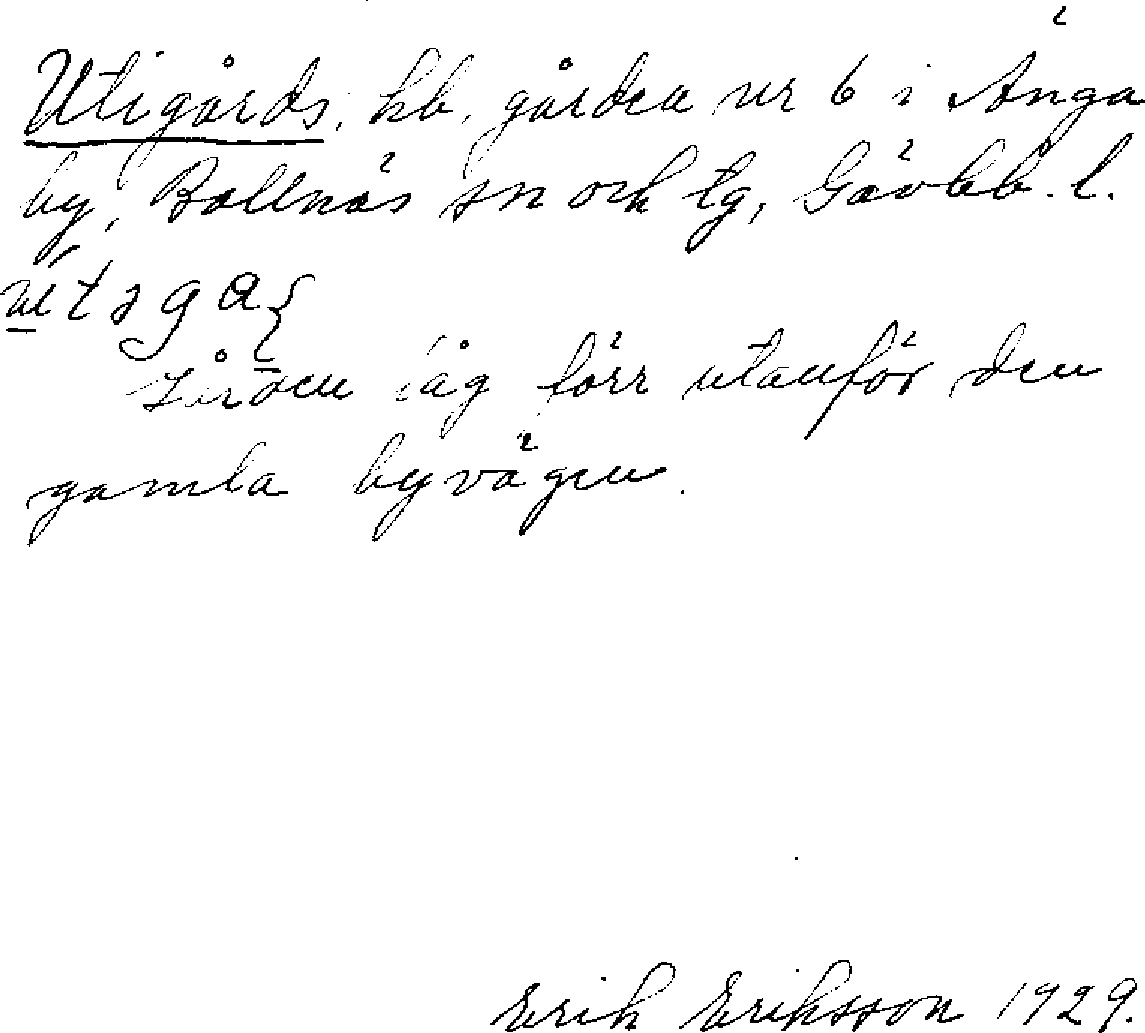 Utigårds, hb, gården nr 6 i Änga
by, Bollnäs sn och tg, Gävleb. l.
Gården låg förr utanför den
gamla byvägen.
Erik Eriksson 1929.